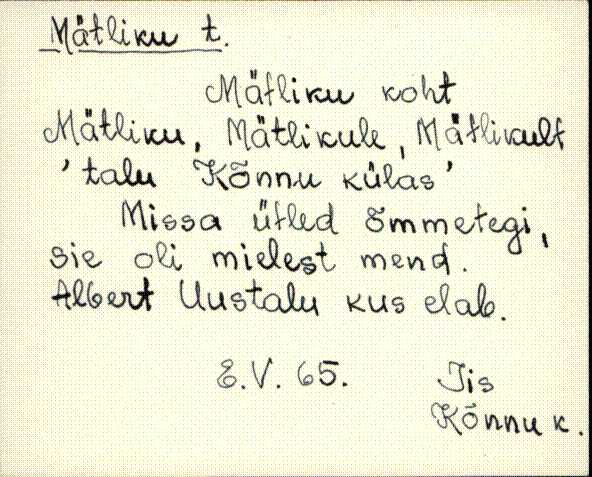 Mätliku t.
Mätliku koht
Mätliku, Mätlikule, Mätlikult
'talu Kõnnu külas'
Missa ütled õmmetegi,
sie oli mielest mend.
Albert Uustalu kus elab.
E.V. 65. Jis
Kõnnu k.